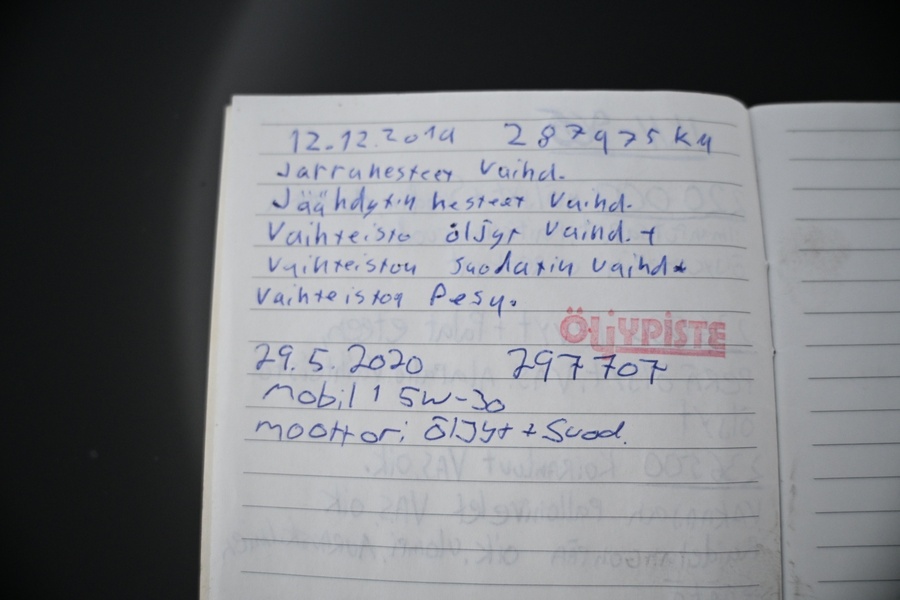 12.12.2019 287975 KM
Jarrunesteet Vaihd.
Jäähdytin nesteet Vaihd.
Vaihteisto öljyt Vaihd. +
Vaihteiston Suodatin vaihd+
Vaihteiston Pesu.
ÖLJYPISTE
29.5.2020 297707
Mobil 1 5W-30
moottori öljyt + Suod.